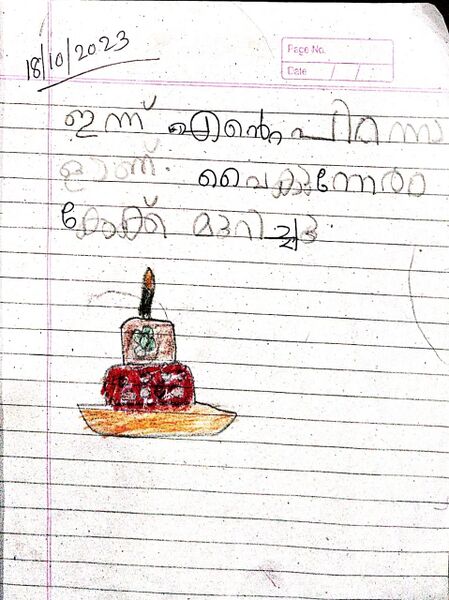 18/10/2023
Page No.
Date / /
ഇന്ന് എന്റെ പിറന്നാ
ളാണ്. വൈകുന്നേരം
കേക്ക് മുറിച്ചു